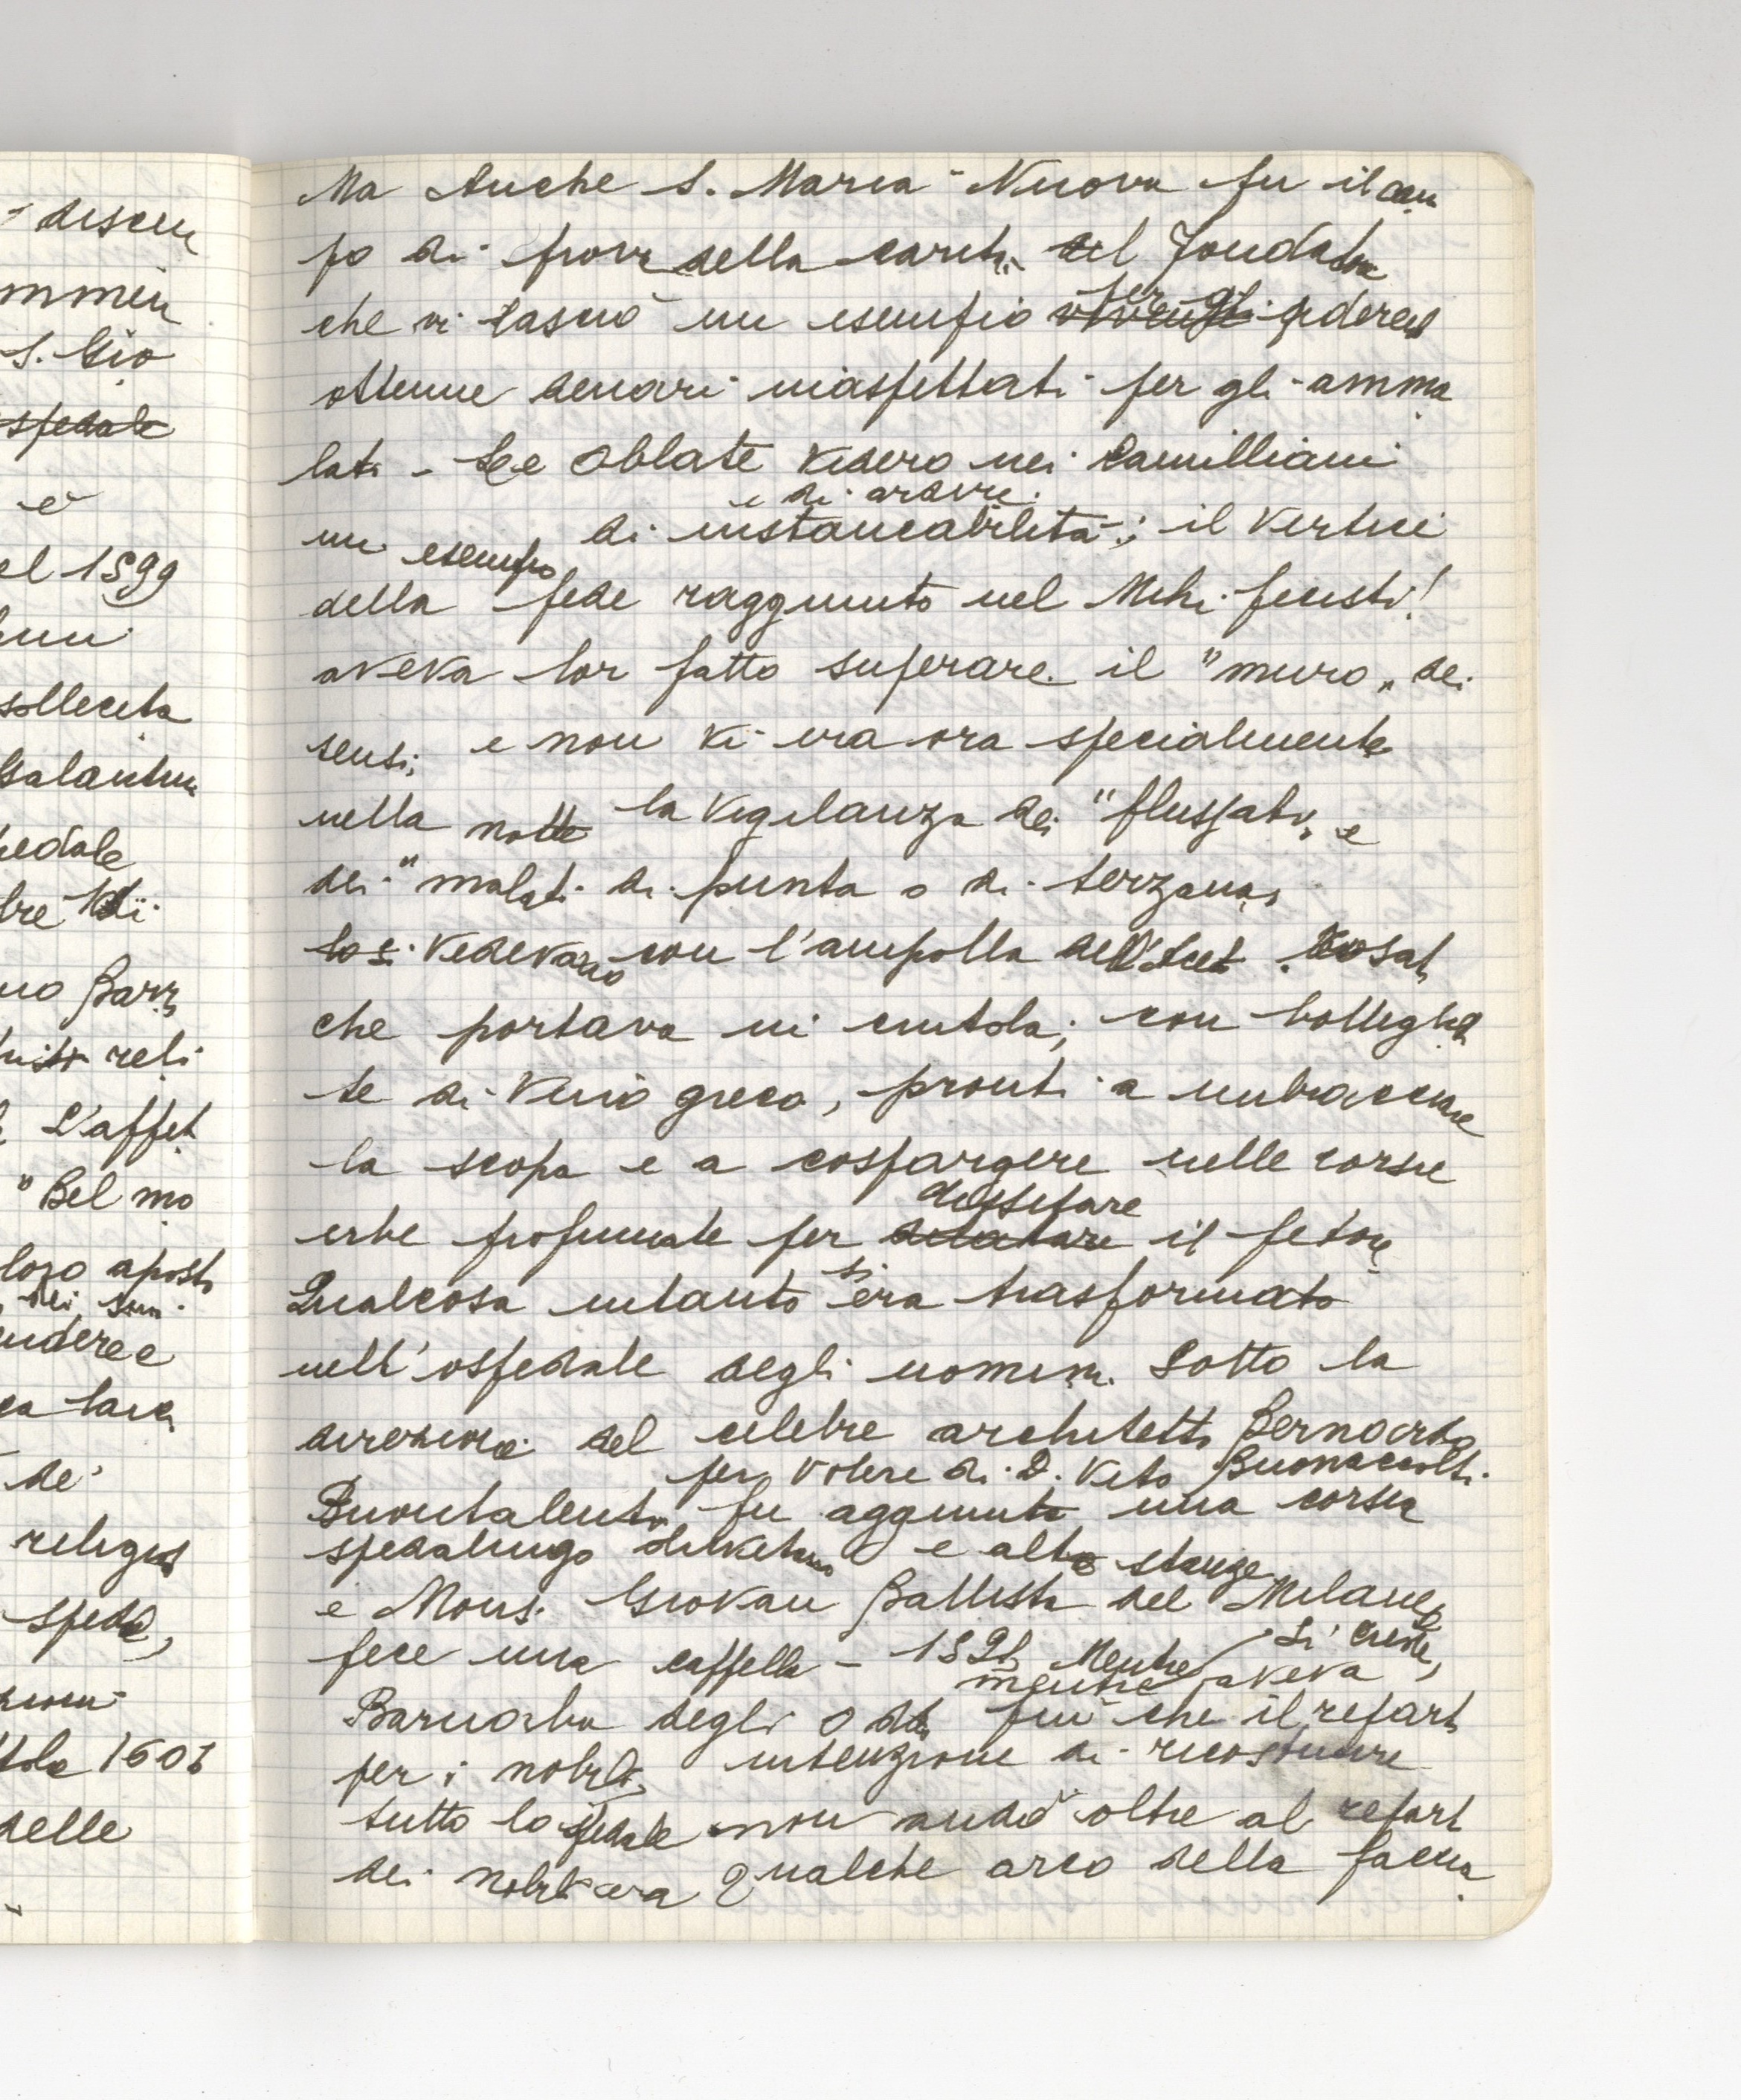 discen
mmin
S. Gio
spedale
e
el 1599
sollecita
Galantuo
pedale
bre
no Barr
reli
L'affet
"Bel mo
loro aposto
dei
nderee
de'
religios
speda,
1601
delle
Ma Anche S. Maria Nuova fu il cam
po di prova della carità del Fondatore
che vi lasciò un esempio viventi per gli
ottenne denari inaspettati per gli amma
lati - Le Oblate videro nei Camilliani
e di ardore
un esempio di instancabilità; il vertice
della fede raggiunto nel Mihi fecisti!
aveva lor fatto superare il "muro" dei
sensi, e non vi era ora specialmente
nella notte la vigilanza dei "flussati" e
dei "malati di punta o di terzana"
los. vedevano con l'ampolla dell'Acet. Rosato
che portava in cintola; con bottiglia
te di vino greco, pronti a imbracciare
la scopa e a cospargere nelle corsie
dissipare
erbe profumate per il fetore
si
Qualcosa intanto era trasformato
nell'ospedale degli uomini. Sotto la
direzione del celebre architetto Bernardo
per volere di D. Vito Buonaccolti
Buontalenti fu aggiunta una corsia
spedalingo e altre stanze
e Mons. Giovan Battista del Milanese
fece una cappella - Mentre Si crede,
mentre aveva
Barnaba degli Oddi fuì che il repart
per i nobili intenzione di ricostruire
tutto lo spedale non andò oltre al repart
dei nobili era Qualche arco della faccia